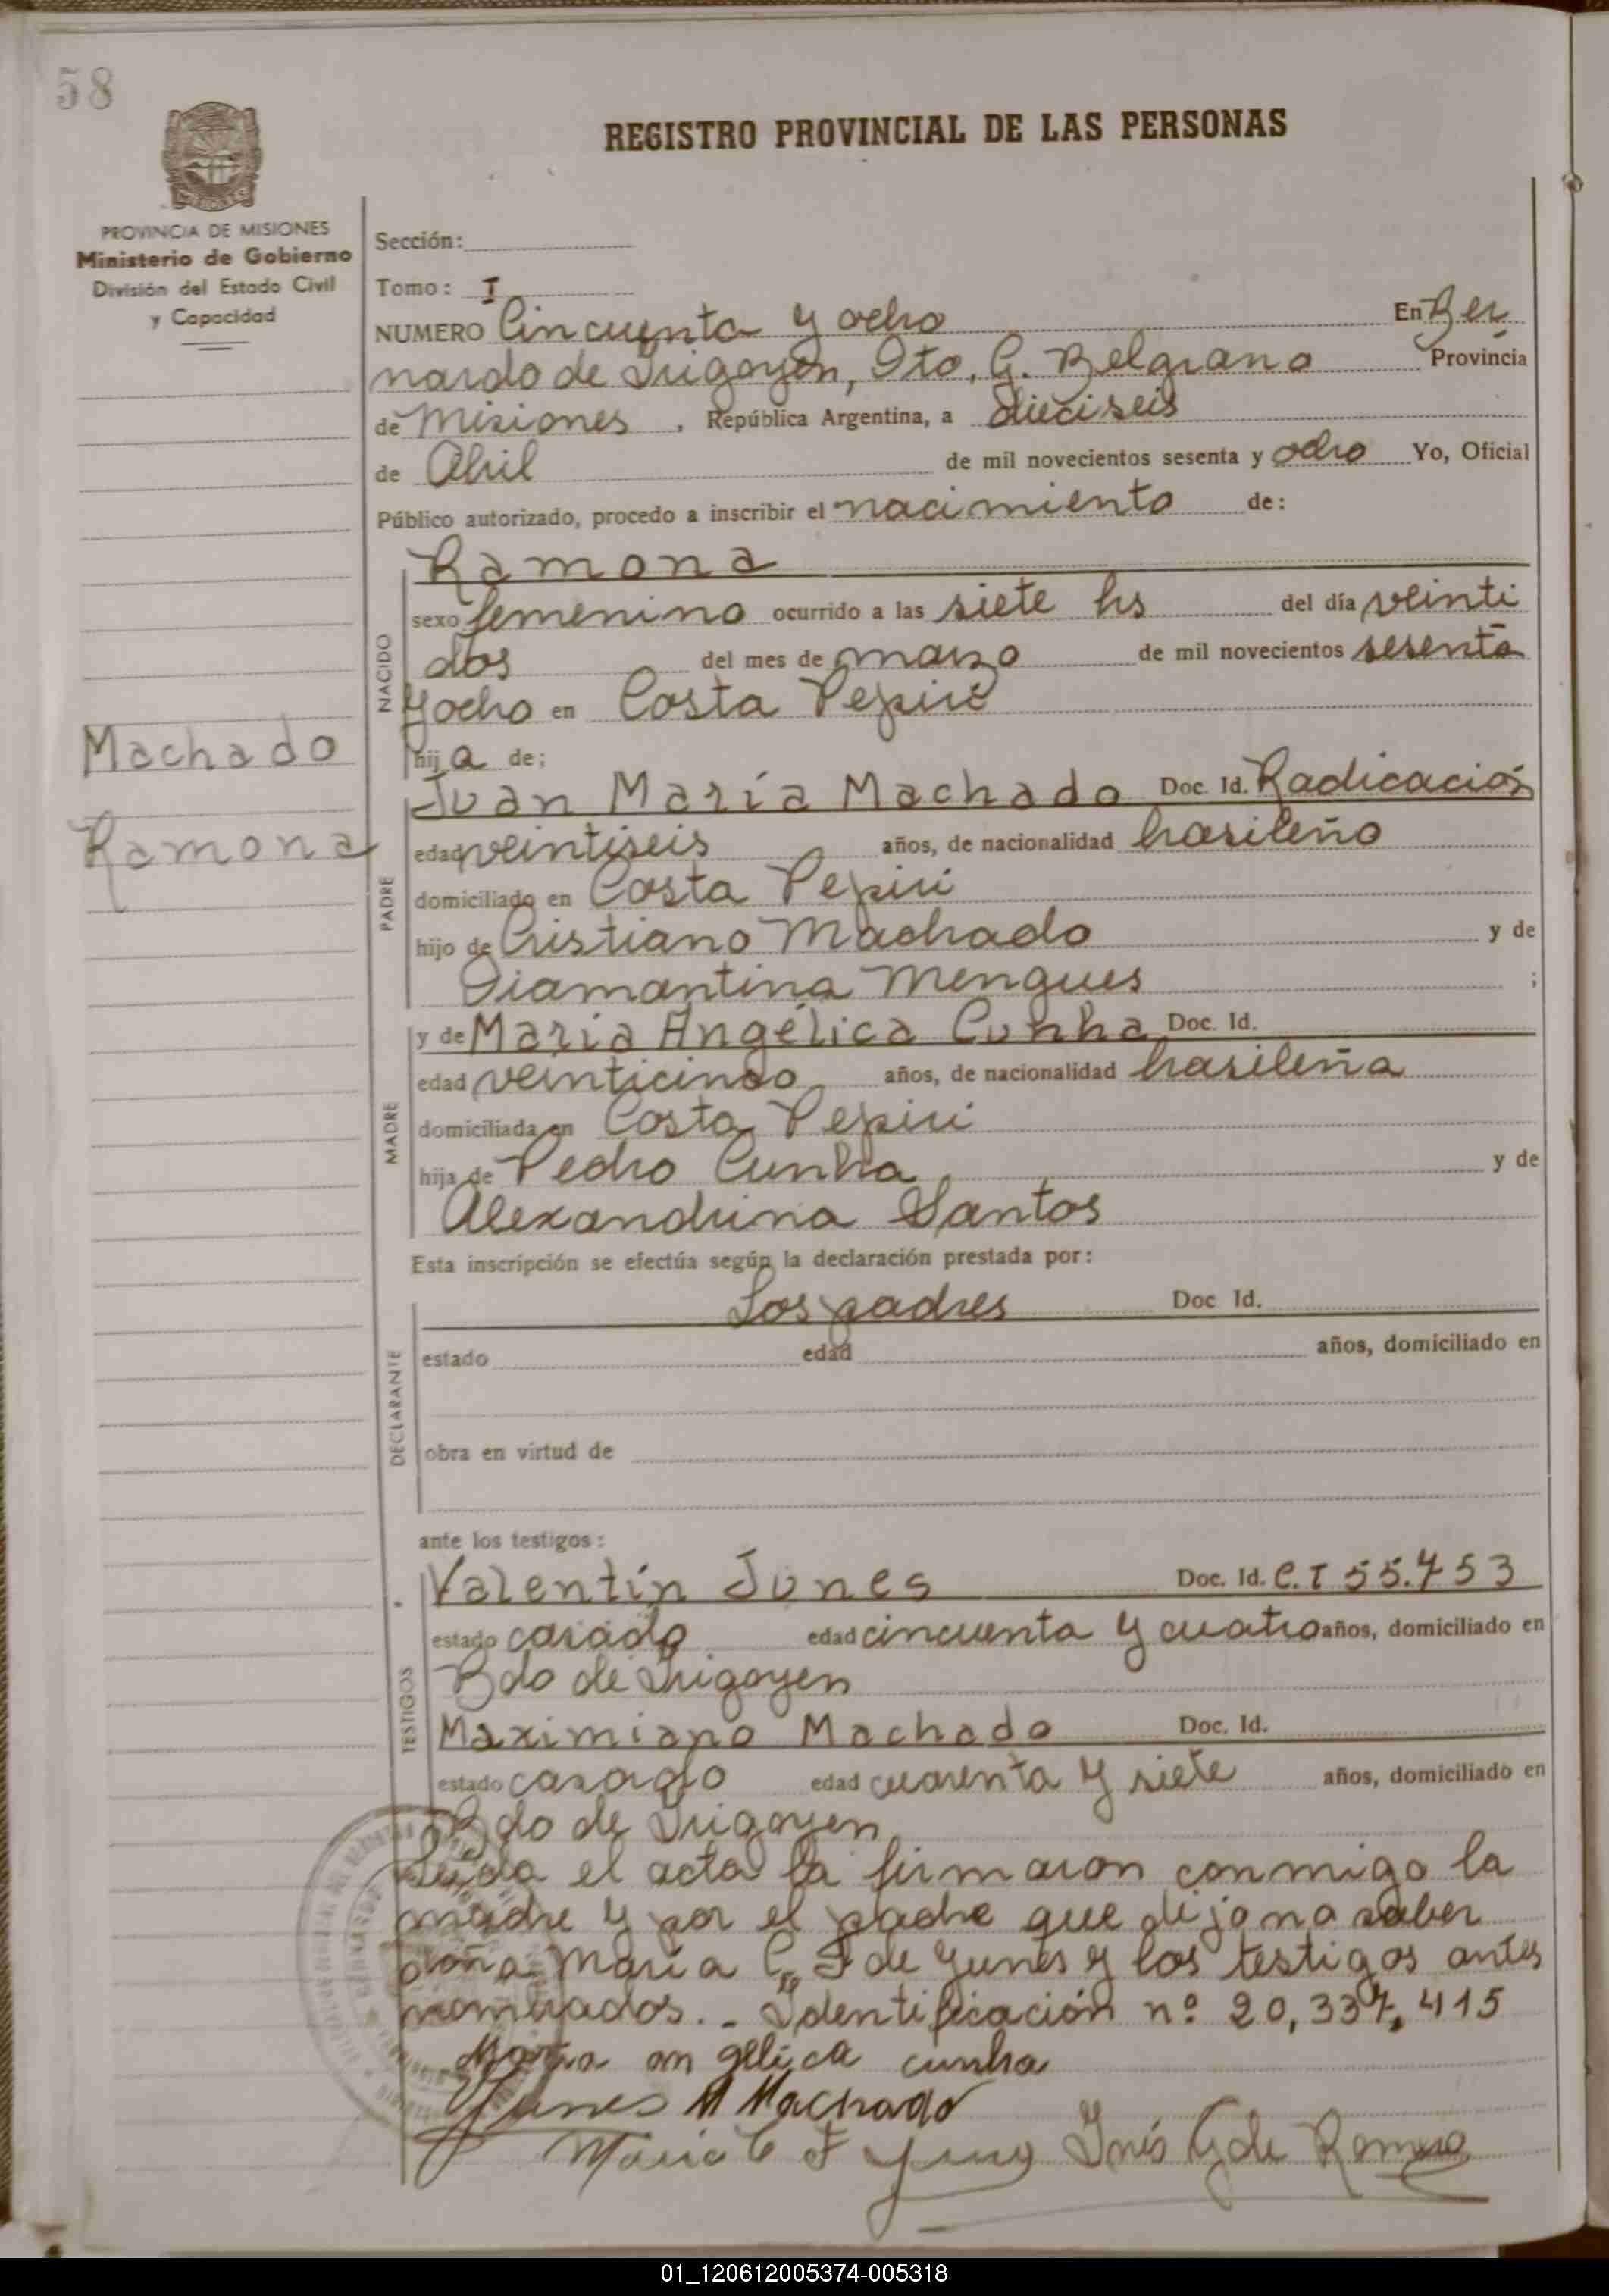 58
REGISTRO PROVINCIAL DE LAS PERSONAS
PROVINCIA DE MISIONES
Ministerio de Gobierno
División del Estado Civil
y Capacidad
Sección:
Tomo: I
NUMERO Cincuenta y ocho En Ber
nardo de Irigoyen, Dto. G. Belgrano Provincia
de Misiones, República Argentina, a dieciseis
de Abril de mil novecientos sesenta y ocho Yo, Oficial
Público autorizado, procedo a inscribir el nacimiento de:
NACIDO
Ramona
sexo femenino ocurrido a las siete hs del día veinti
dos del mes de marzo de mil novecientos sesenta
y ocho en Costa Pepiri
Machado
Ramona
hija de;
PADRE
Juan María Machado Doc. Id. Radicación
edad veintiseis años, de nacionalidad brasileño
domiciliado en Costa Pepiri
hijo de Cristiano Machado y de
Diamantina Mengues ;
MADRE
y de María Angélica Cunha Doc. Id.
edad veinticinco años, de nacionalidad brasileña
domiciliada en Costa Pepiri
hija de Pedro Cunha y de
Alexandrina Santos
Esta inscripción se efectúa según la declaración prestada por:
DECLARANTE
Los padres Doc Id.
estado edad años, domiciliado en
obra en virtud de
ante los testigos:
TESTIGOS
Valentín Junes Doc. Id. C.I 55.753
estado casado edad cincuenta y cuatro años, domiciliado en
Bdo de Irigoyen
Maximiano Machado Doc. Id.
estado casado edad cuarenta y siete años, domiciliado en
Bdo de Irigoyen
Leída el acta la firmaron conmigo la
madre y por el padre que dijo no saber
doña María C. F de Yunes y los testigos antes
nombrados.- Identificación nº 20,337,415
Maria angelica cunha
Junes M Machado
Maria C F Inés de Romero
01_120612005374-005318